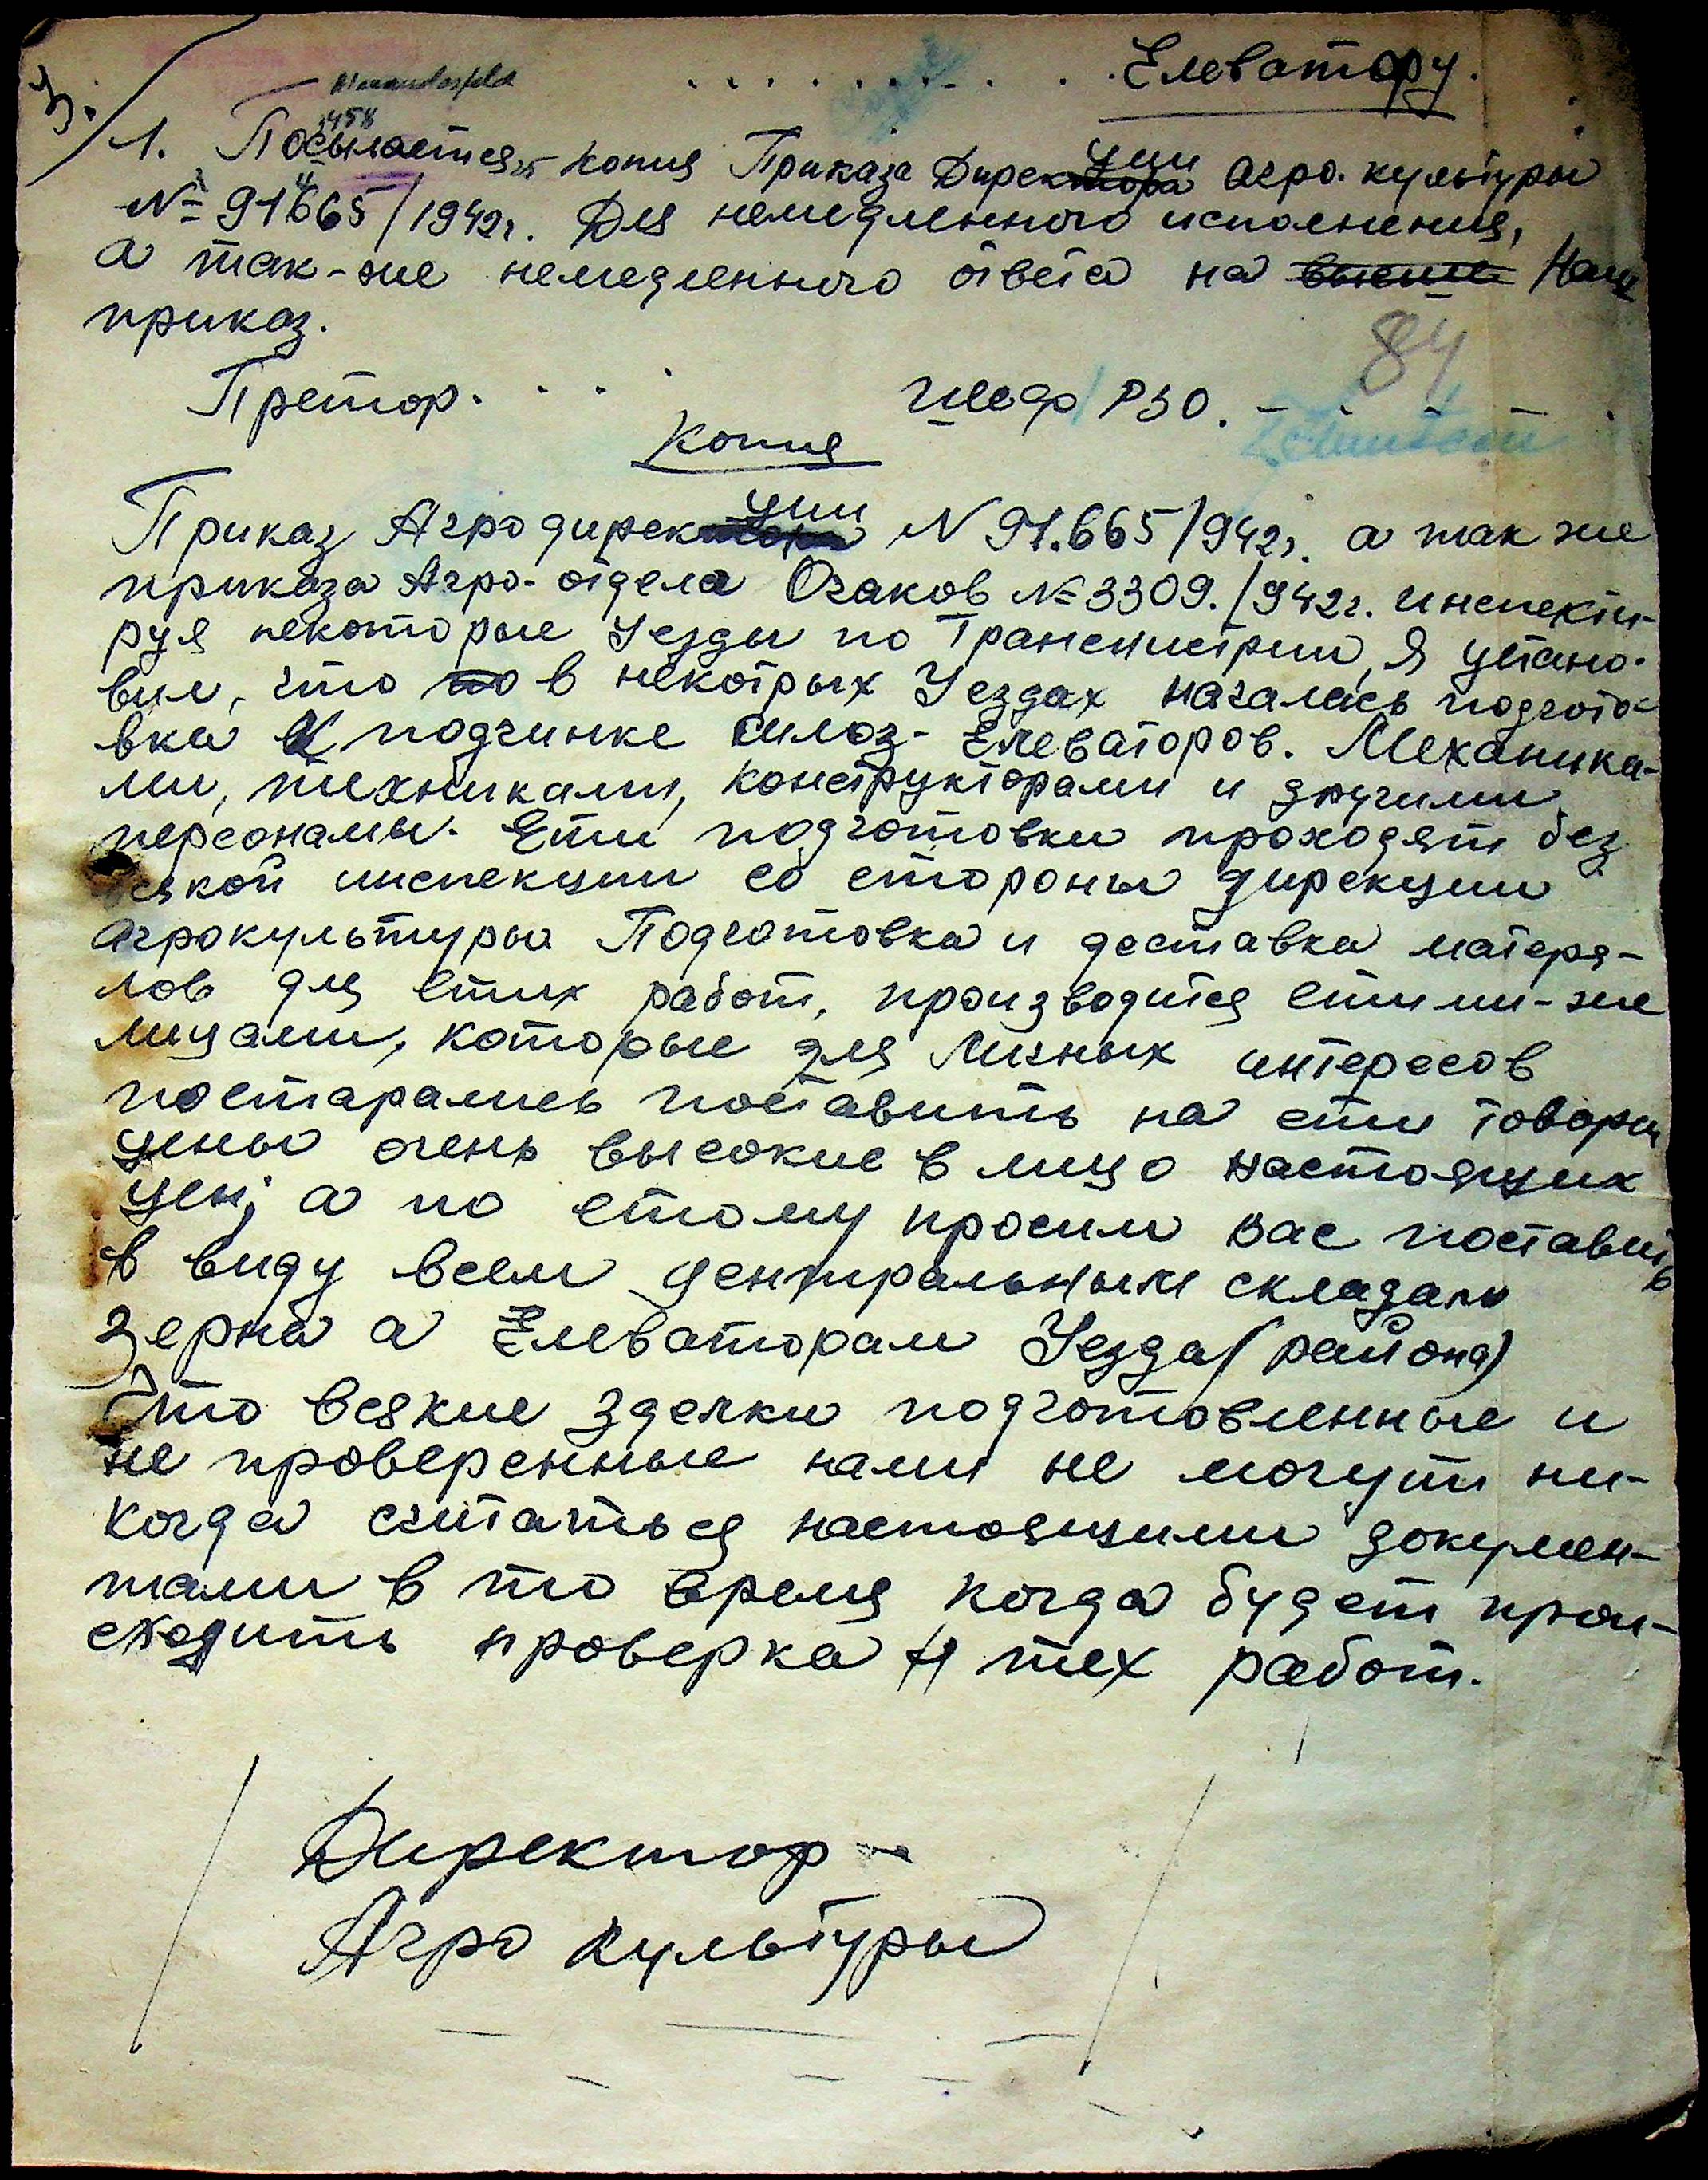 3.
. . . . . . . . . . Елеватору.
1458
1. Посылается Копия Приказа Дирекции агро. культуры
№ 91665/1942г. Для немедленного исполнения,
а так-же немедленного ответа на Наш
приказ.
84
Претор. . . . шеф РЗО. - - -
Копия
Приказ Агродирекции N 91.665/942г. а так же
приказа Агро-отдела Очаков №3309./942г. инспекти-
руя некоторые Уезды по Транснистрии, Я устано-
вил, что в некотрых Уездах началась подгото-
вка к подчинке силоз-Елеваторов. Механика-
ми, техниками, конструкторами и другими
персонамы. Ети подготовки проходят без
всякой инспекции со стороны дирекции
агрокультуры Подготовка и доставка матеря-
лов для етих работ, производится етими-же
лицами, которые для личных интересов
постарались поставить на ети товары
цены очень высокие в лицо настоящих
цен; а по етому просим вас поставить
в виду всем центральным складам
зерна а Елеваторам Уезда (района)
Что всякие зделки подготовленные и
не проверенные нами не могут ни-
когда считаться настоящими докумен-
тами в то время когда будет прои-
сходить проверка тех работ.
Директор -
Агро культуры